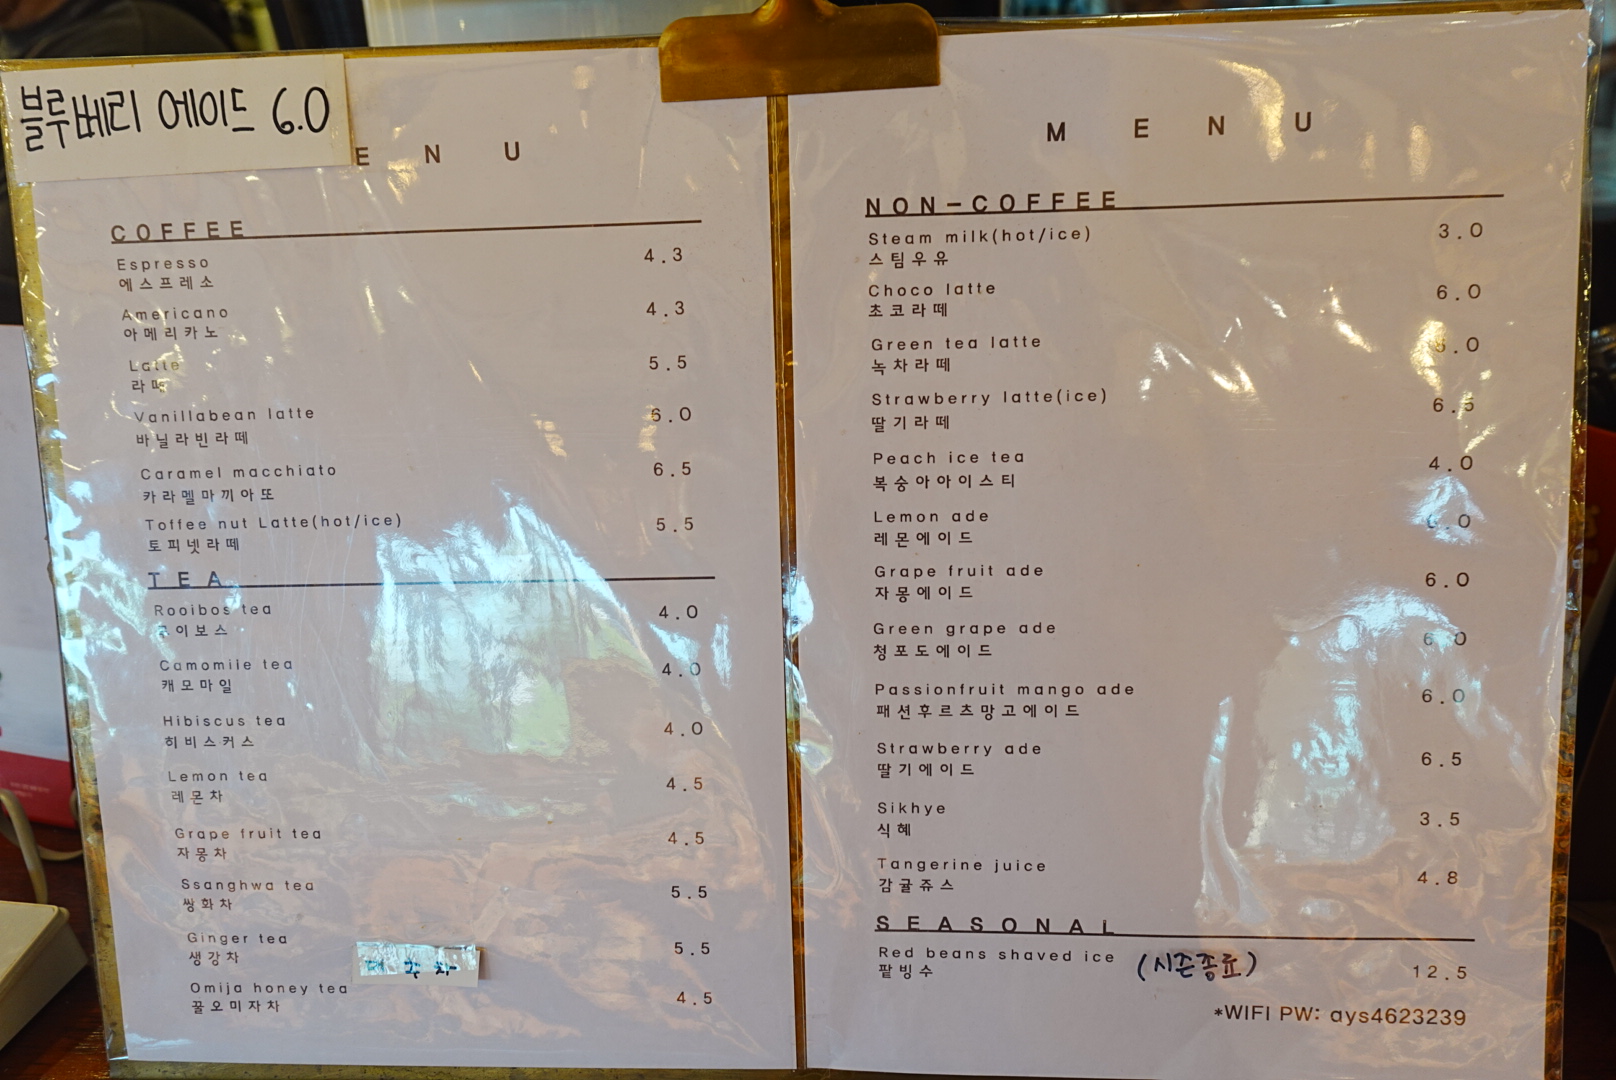 블루베리 에이드 6.0
E N U
COFFEE
Espresso 4.3
에스프레소
Americano 4.3
아메리카노
Latte 5.5
라떼
Vanillabean latte 6.0
바닐라빈라떼
Caramel macchiato 6.5
카라멜마끼아또
Toffee nut Latte(hot/ice) 5.5
토피넛라떼
TEA
Rooibos tea 4.0
루이보스
Camomile tea 4.0
캐모마일
Hibiscus tea 4.0
히비스커스
Lemon tea 4.5
레몬차
Grape fruit tea 4.5
자몽차
Ssanghwa tea 5.5
쌍화차
Ginger tea 5.5
생강차
Omija honey tea 4.5
꿀오미자차
M E N U
NON-COFFEE
Steam milk(hot/ice) 3.0
스팀우유
Choco latte 6.0
초코라떼
Green tea latte
녹차라떼
Strawberry latte(ice) 6.5
딸기라떼
Peach ice tea 4.0
복숭아아이스티
Lemon ade
레몬에이드
Grape fruit ade 6.0
자몽에이드
Green grape ade 6.0
청포도에이드
Passionfruit mango ade 6.0
패션후르츠망고에이드
Strawberry ade 6.5
딸기에이드
Sikhye 3.5
식혜
Tangerine juice 4.8
감귤쥬스
SEASONAL
Red beans shaved ice (시즌종료) 12.5
팥빙수
*WIFI PW: ays4623239